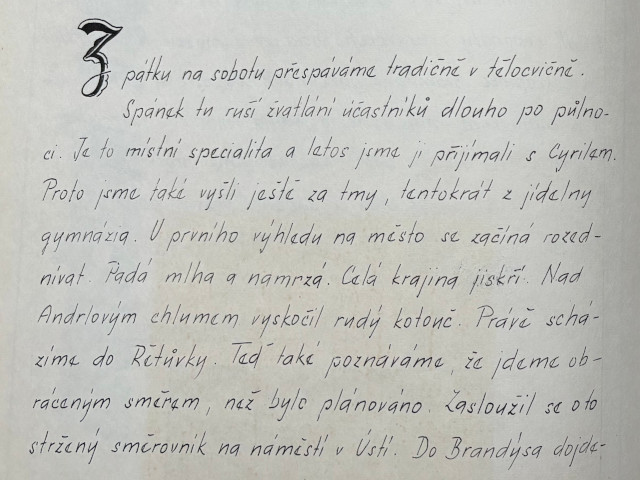 Z pátku na sobotu přespáváme tradičně v tělocvičně.
Spánek tu ruší žvatlání účastníků dlouho po půlno-
ci. Je to místní specialita a letos jsme ji přijímali s Cyrilem.
Proto jsme také vyšli ještě za tmy, tentokrát z jídelny
gymnázia. U prvního výhledu na město se začíná rozed-
nívat. Padá mlha a namrzá. Celá krajina jiskří. Nad
Andrlovým chlumem vyskočil rudý kotouč. Právě schá-
zíme do Řetůvky. Teď také poznáváme, že jdeme ob-
ráceným směrem, než bylo plánováno. Zasloužil se o to
stržený směrovník na náměstí v Ústí. Do Brandýsa dojde-